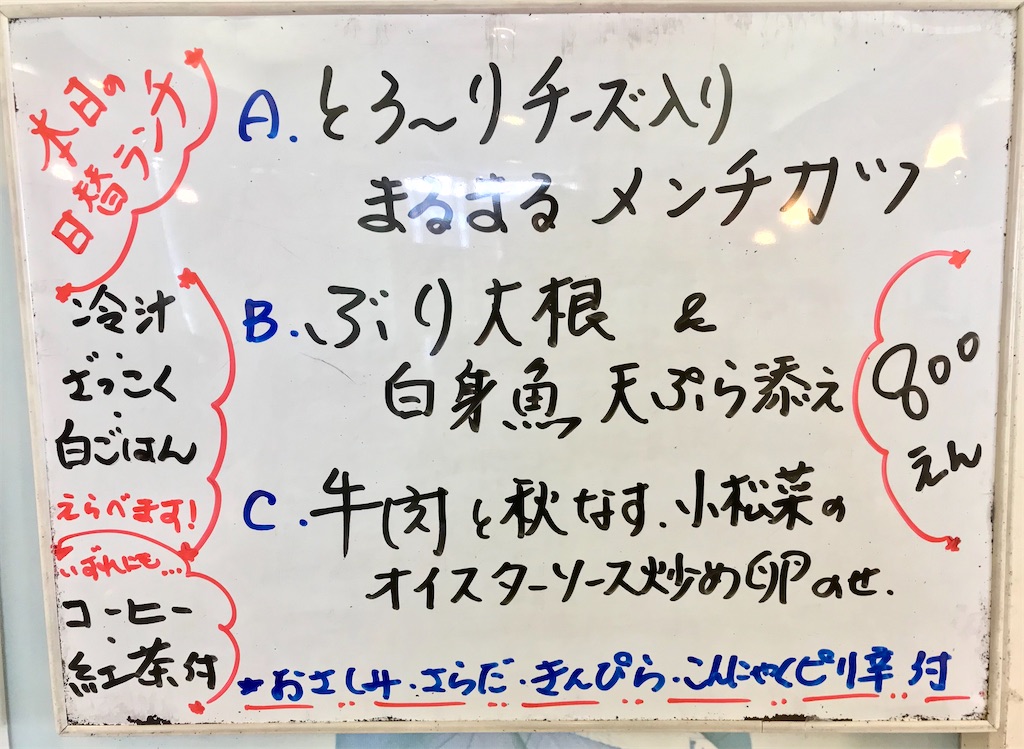 本日の
日替ランチ
A. とろ〜りチーズ入り
まるまる メンチカツ
B. ぶり大根 &
白身魚 天ぷら添え
C. 牛肉と秋なす.小松菜の
オイスターソース炒め卵のせ.
800
えん
冷汁
ざっこく
白ごはん
えらべます!
いずれにも...
コーヒー
紅茶付
*おさしみ・さらだ・きんぴら・こんにゃくピリ辛 付